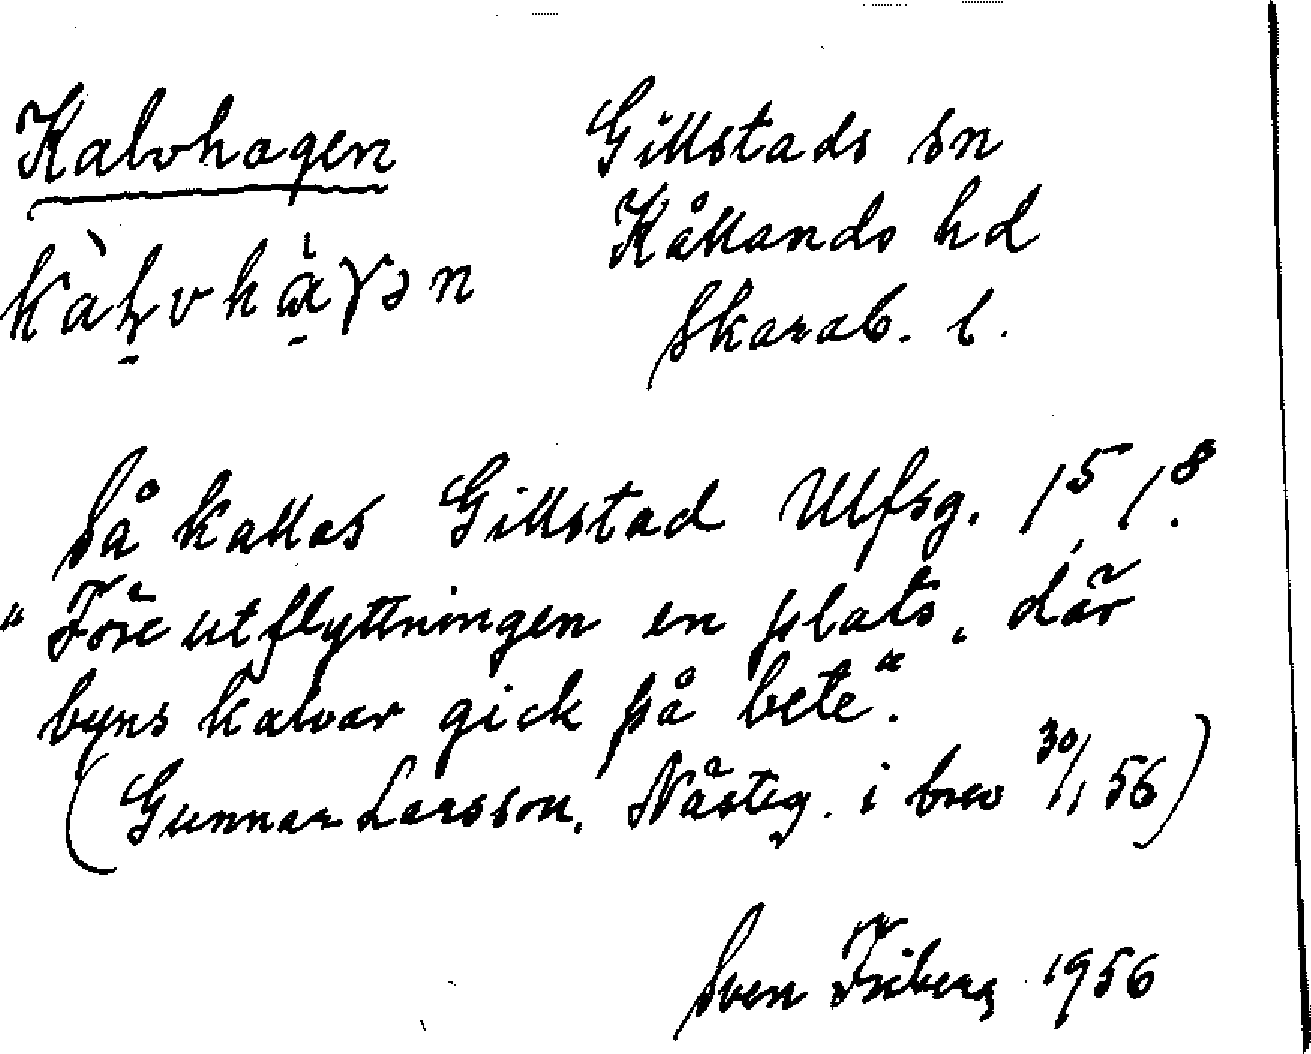 Kalvhagen
Gillstads sn
Kållands hd
Skarab. l.
Så kallas Gillstad Ulfsg. 1⁵ 1⁸.
"Före utflyttningen en plats, där
byns kalvar gick på bete".
(Gunnar Larsson, i brev 30/1 56)
Sven Friberg 1956